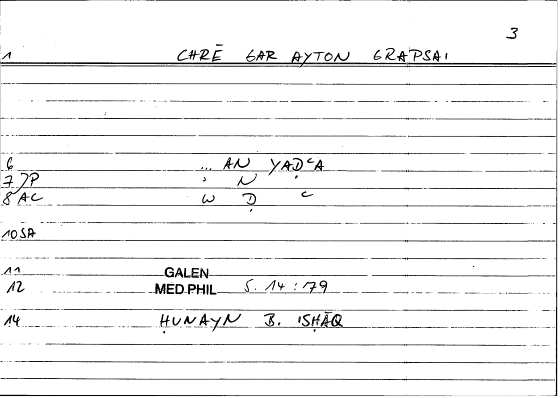 3
1 CHRĒ GAR AYTON GRAPSAI
6 ... AN YAḌʿA
7 )P ' N
8 AC W Ḍ ʿ
10 SA
11 GALEN
12 MED PHIL S. 14 : 179
14 ḤUNAYN B. ISḤĀQ